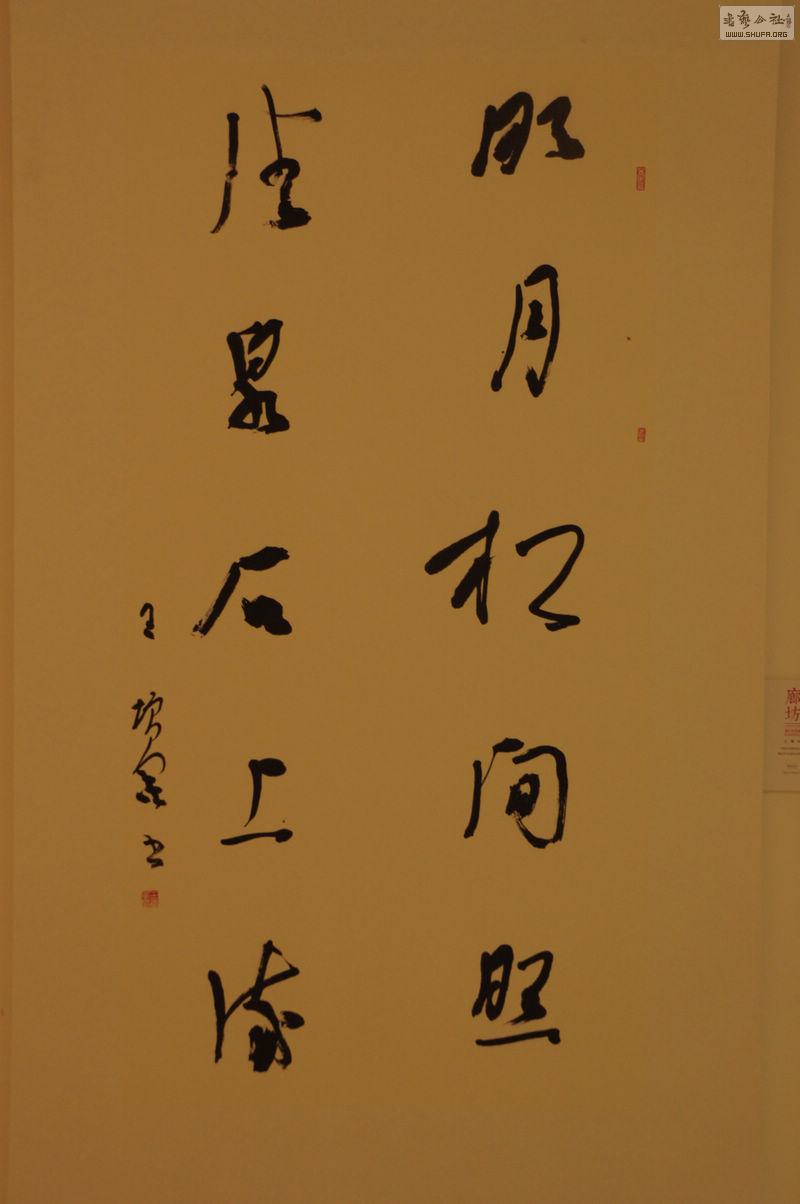 明月松间照
清泉石上流
王
书
书艺公社
WWW.SHUFA.ORG
廊坊